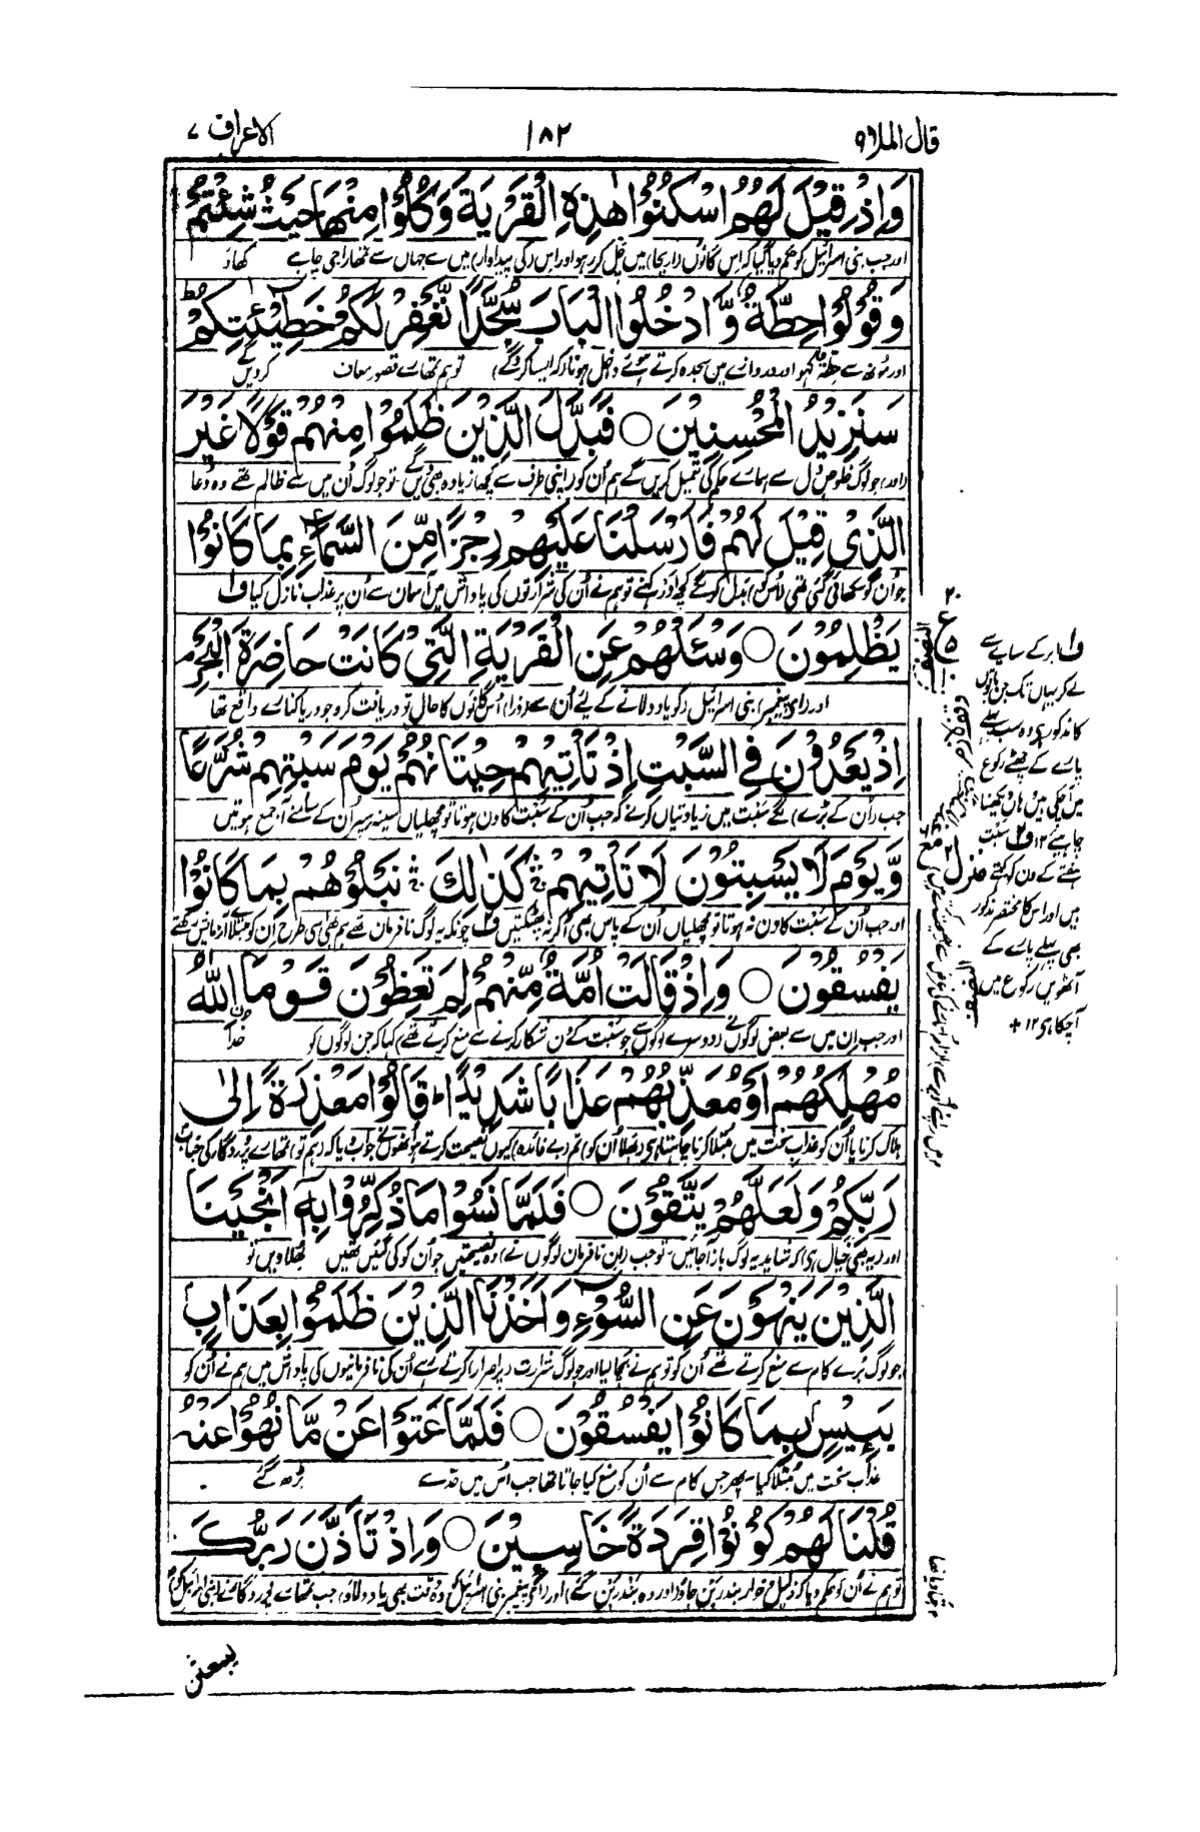 قال الملا ٩
١٨٢
الاعراف ٧
وَاِذْ قِيْلَ لَهُمُ اسْكُنُوْا هٰذِهِ الْقَرْيَةَ وَكُلُوْا مِنْهَا حَيْثُ شِئْتُمْ
اور جب بنی اسرائیل کو حکم دیا گیا کہ اس گانوں (اریحا) میں چل کر رہو اور اس (کی پیداوار) میں سے جہاں سے تمھارا جی چاہے کھاؤ
وَقُوْلُوْا حِطَّةٌ وَّادْخُلُوا الْبَابَ سُجَّدًا نَّغْفِرْ لَكُمْ خَطِيْٓئٰتِكُمْ ط
اور مونھ سے حطة کہو اور دروازے میں سجدہ کرتے ہوئے داخل ہونا (کہ ایسا کروگے) تو ہم تمھارے قصور معاف کر دیں گے
سَنَزِيْدُ الْمُحْسِنِيْنَ ○ فَبَدَّلَ الَّذِيْنَ ظَلَمُوْا مِنْهُمْ قَوْلًا غَيْرَ
(اور) جو لوگ خلوص دل سے ہمارے حکم کی تعمیل کریں گے ہم اُن کو اپنی طرف سے کچھ زیادہ بھی دیں گے۔ تو جو لوگ اُن میں سے ظالم تھے وہ دُعا
الَّذِيْ قِيْلَ لَهُمْ فَاَرْسَلْنَا عَلَيْهِمْ رِجْزًا مِّنَ السَّمَآءِ بِمَا كَانُوْا
جو اُن کو سکھائی گئی تھی (اُس کو) بدل کر لگے کچھ اور کہنے تو ہم نے اُن کی شرارتوں کی پاداش میں آسمان سے اُن پر عذاب نازل کیا ف۱
يَظْلِمُوْنَ ○ وَسْـَٔلْهُمْ عَنِ الْقَرْيَةِ الَّتِيْ كَانَتْ حَاضِرَةَ الْبَحْرِ م
اور (اے پیغمبر) بنی اسرائیل (کو یاد دلانے کے لیے اُن) سے (ذرا) اُس گانوں کا حال تو دریافت کرو جو دریا کنارے واقع تھا
اِذْ يَعْدُوْنَ فِي السَّبْتِ اِذْ تَاْتِيْهِمْ حِيْتَانُهُمْ يَوْمَ سَبْتِهِمْ شُرَّعًا
جب (اُن کے بڑے) لگے سبت میں زیادتیاں کرنے کہ جب اُن کے سبت کا دن ہوتا تو مچھلیاں سینہ سپر اُن کے سامنے آ جمع ہوتیں
وَّيَوْمَ لَا يَسْبِتُوْنَ لَا تَاْتِيْهِمْ كَذٰلِكَ نَبْلُوْهُمْ بِمَا كَانُوْا
اور جب اُن کے سبت کا دن نہ ہوتا تو مچھلیاں اُن کے پاس بھی آ کر نہ پھٹکتیں ف۲ چونکہ یہ لوگ نافرمان تھے ہم بھی اسی طرح اِن کو مبتلائے آزمایش رکھتے تھے
يَفْسُقُوْنَ ○ وَاِذْ قَالَتْ اُمَّةٌ مِّنْهُمْ لِمَ تَعِظُوْنَ قَوْمَا ۨاللّٰهُ
اور جب اِن میں سے بعض لوگوں نے (دوسرے لوگوں سے جو سبت کے دن شکار کرنے سے منع کرتے تھے) کہا کہ جن لوگوں کو خدا
مُهْلِكُهُمْ اَوْ مُعَذِّبُهُمْ عَذَابًا شَدِيْدًا ط قَالُوْا مَعْذِرَةً اِلٰى
ہلاک کرنا یا اُن کو عذاب سخت میں مبتلا کرنا چاہتا ہی (بھلا) اُن کو (تم بے فائدہ) کیوں نصیحت کرتے ہو اُنھوں نے جواب دیا کہ (ہم تو) تمھارے پروردگار کی جناب
رَبِّكُمْ وَلَعَلَّهُمْ يَتَّقُوْنَ ○ فَلَمَّا نَسُوْا مَا ذُكِّرُوْا بِهٖٓ اَنْجَيْنَا
اور (یہ بھی خیال ہی) کہ شاید یہ لوگ باز آ جائیں۔ تو جب (ان نافرمان لوگوں نے) وہ نصیحتیں جو اُن کو کی گئیں تھیں بُھلا دیں تو
الَّذِيْنَ يَنْهَوْنَ عَنِ السُّوْٓءِ وَاَخَذْنَا الَّذِيْنَ ظَلَمُوْا بِعَذَابٍ
جو لوگ بُرے کام سے منع کرتے تھے اُن کو تو ہم نے بچا لیا اور جو لوگ شرارت (پر اصرار) کرتے رہے اُن کی نافرمانیوں کی پاداش میں ہم نے اُن کو
بَـِٔيْسٍۭ بِمَا كَانُوْا يَفْسُقُوْنَ ○ فَلَمَّا عَتَوْا عَنْ مَّا نُهُوْا عَنْهُ
عذاب سخت میں مُبتلا کیا۔ پھر جس کام سے اُن کو منع کیا جاتا تھا جب اُس میں حد سے بڑھ گئے
قُلْنَا لَهُمْ كُوْنُوْا قِرَدَةً خَاسِـِٕيْنَ ○ وَاِذْ تَاَذَّنَ رَبُّكَ
تو ہم نے اُن کو حکم دیا کہ ذلیل و خوار بندر بن جاؤ (اور وہ بندر بن گئے) اور (اے پیغمبر بنی اسرائیل کو وہ وقت بھی یاد دلاؤ) جب تمھارے پروردگار نے
ف۱ ابر کے سایے سے
لے کر یہاں تک جن باتوں
کا مذکور ہی وہ سب پہلے
پارے کے چھٹے رکوع
میں آچکی ہیں وہاں دیکھنا
چاہیے ۱۲ ف۲ سبت
ہفتے کے دن کو کہتے
ہیں اور اس کا مختصر مذکور
بھی پہلے پارے کے
آٹھویں رکوع میں
آچکا ہی ۱۲ +
منزل